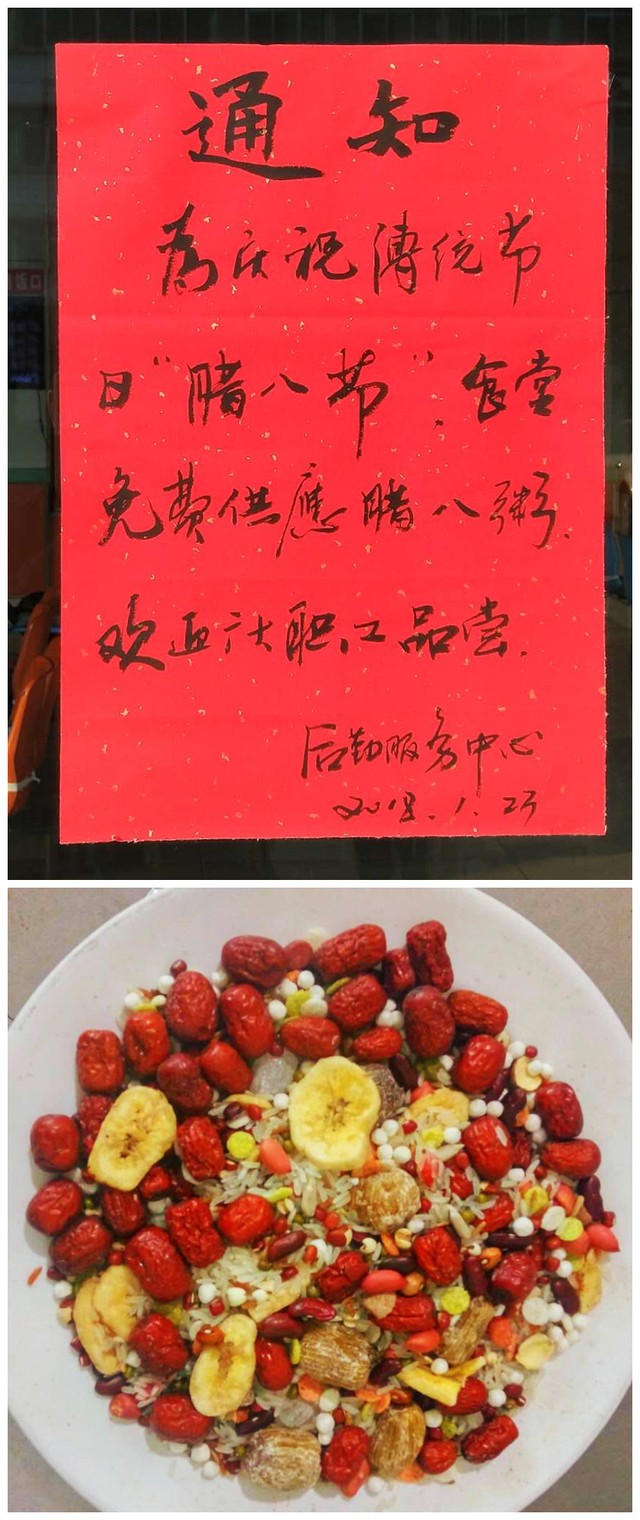 通知
为庆祝傳统节
日“腊八节”.食堂
免费供應腊八粥.
欢迎广大职工品尝.
后勤服务中心
2018.1.23
饭口